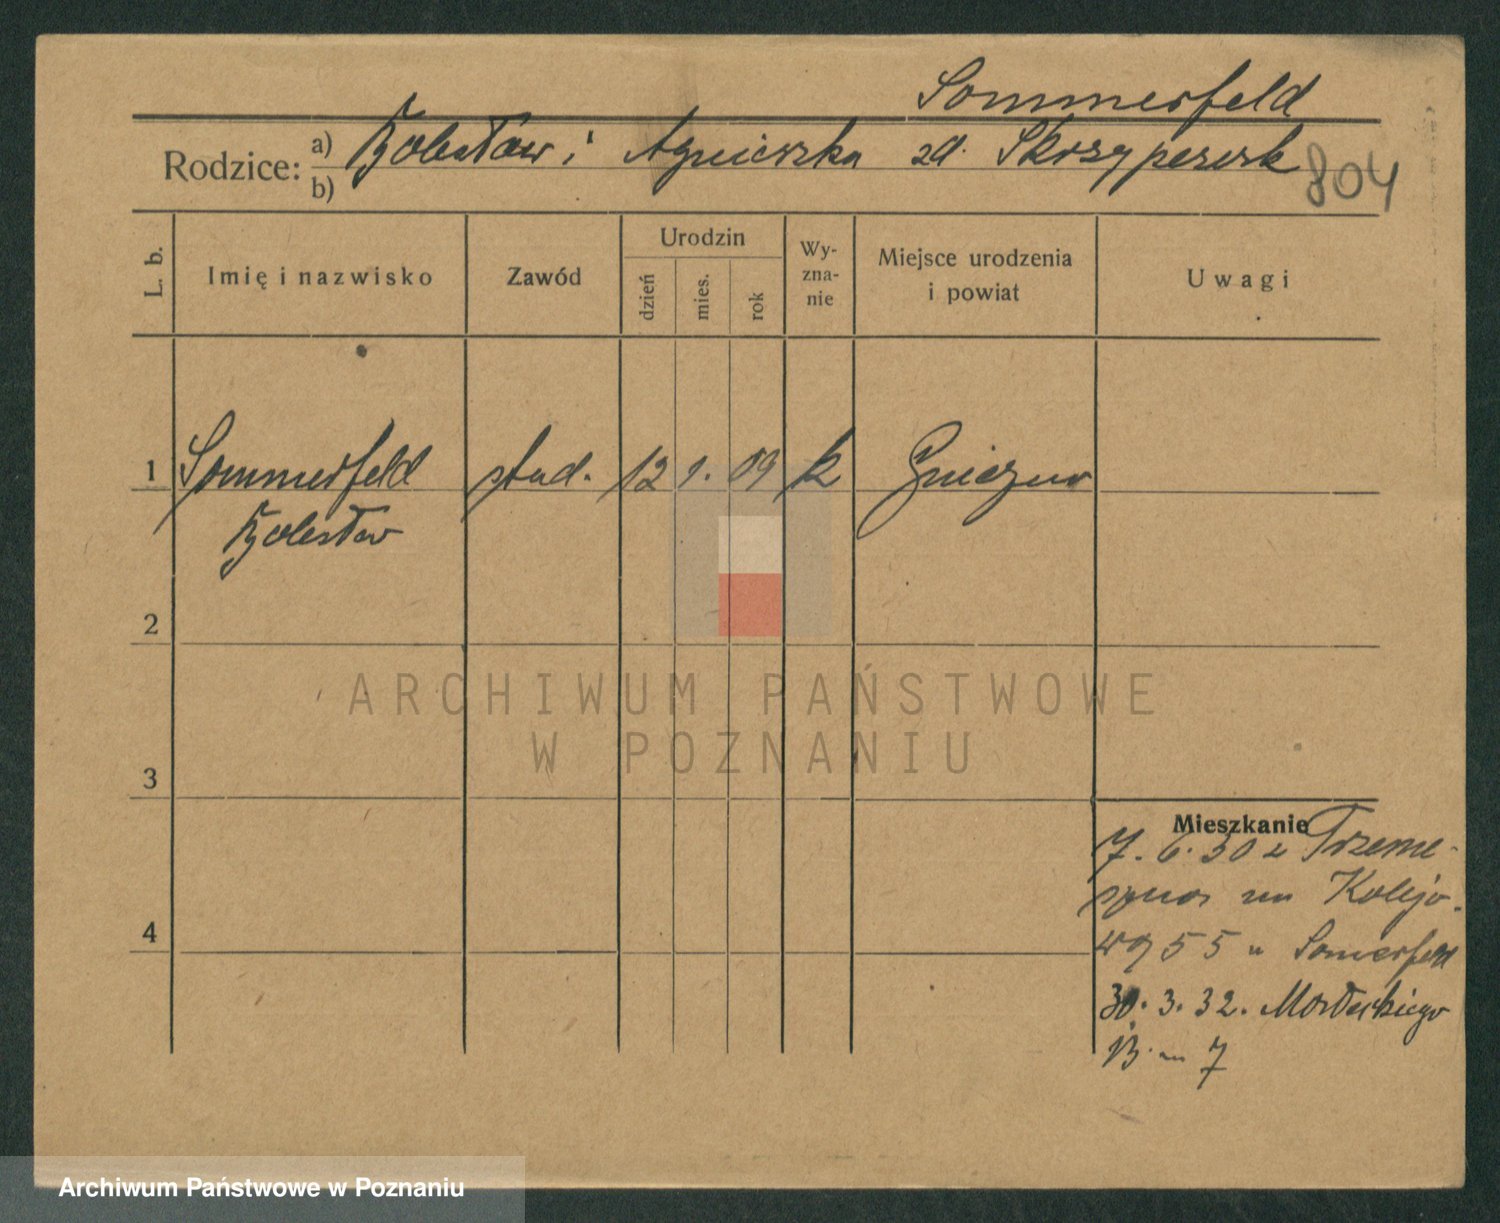 Sommerfeld
Rodzice: a) Bolesław i Agnieszka zd. Skrzypczak
b)
804
L. b.
Imię i nazwisko
Zawód
Urodzin
dzień
mies.
rok
Wy-
zna-
nie
Miejsce urodzenia
i powiat
Uwagi
1 Sommerfeld stud. 12 1. 09 k Gniezno
Bolesław
2
3
4
Mieszkanie
7. 6. 30 z Trzeme-
szna na Kolejo-
wą 55 u Somerfeld
30. 3. 32.
13 m 7
ARCHIWUM PAŃSTWOWE
W POZNANIU
Archiwum Państwowe w Poznaniu